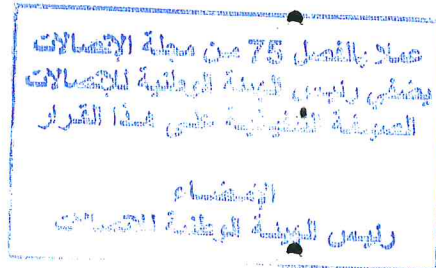 عملا بالفصل 75 من مجلة الإتصالات
يمضي رئيس الهيئة الوطنية للاتصالات
الصيغة التنفيذية على هذا القرار
الإمضاء
رئيس الهيئة الوطنية للاتصالات